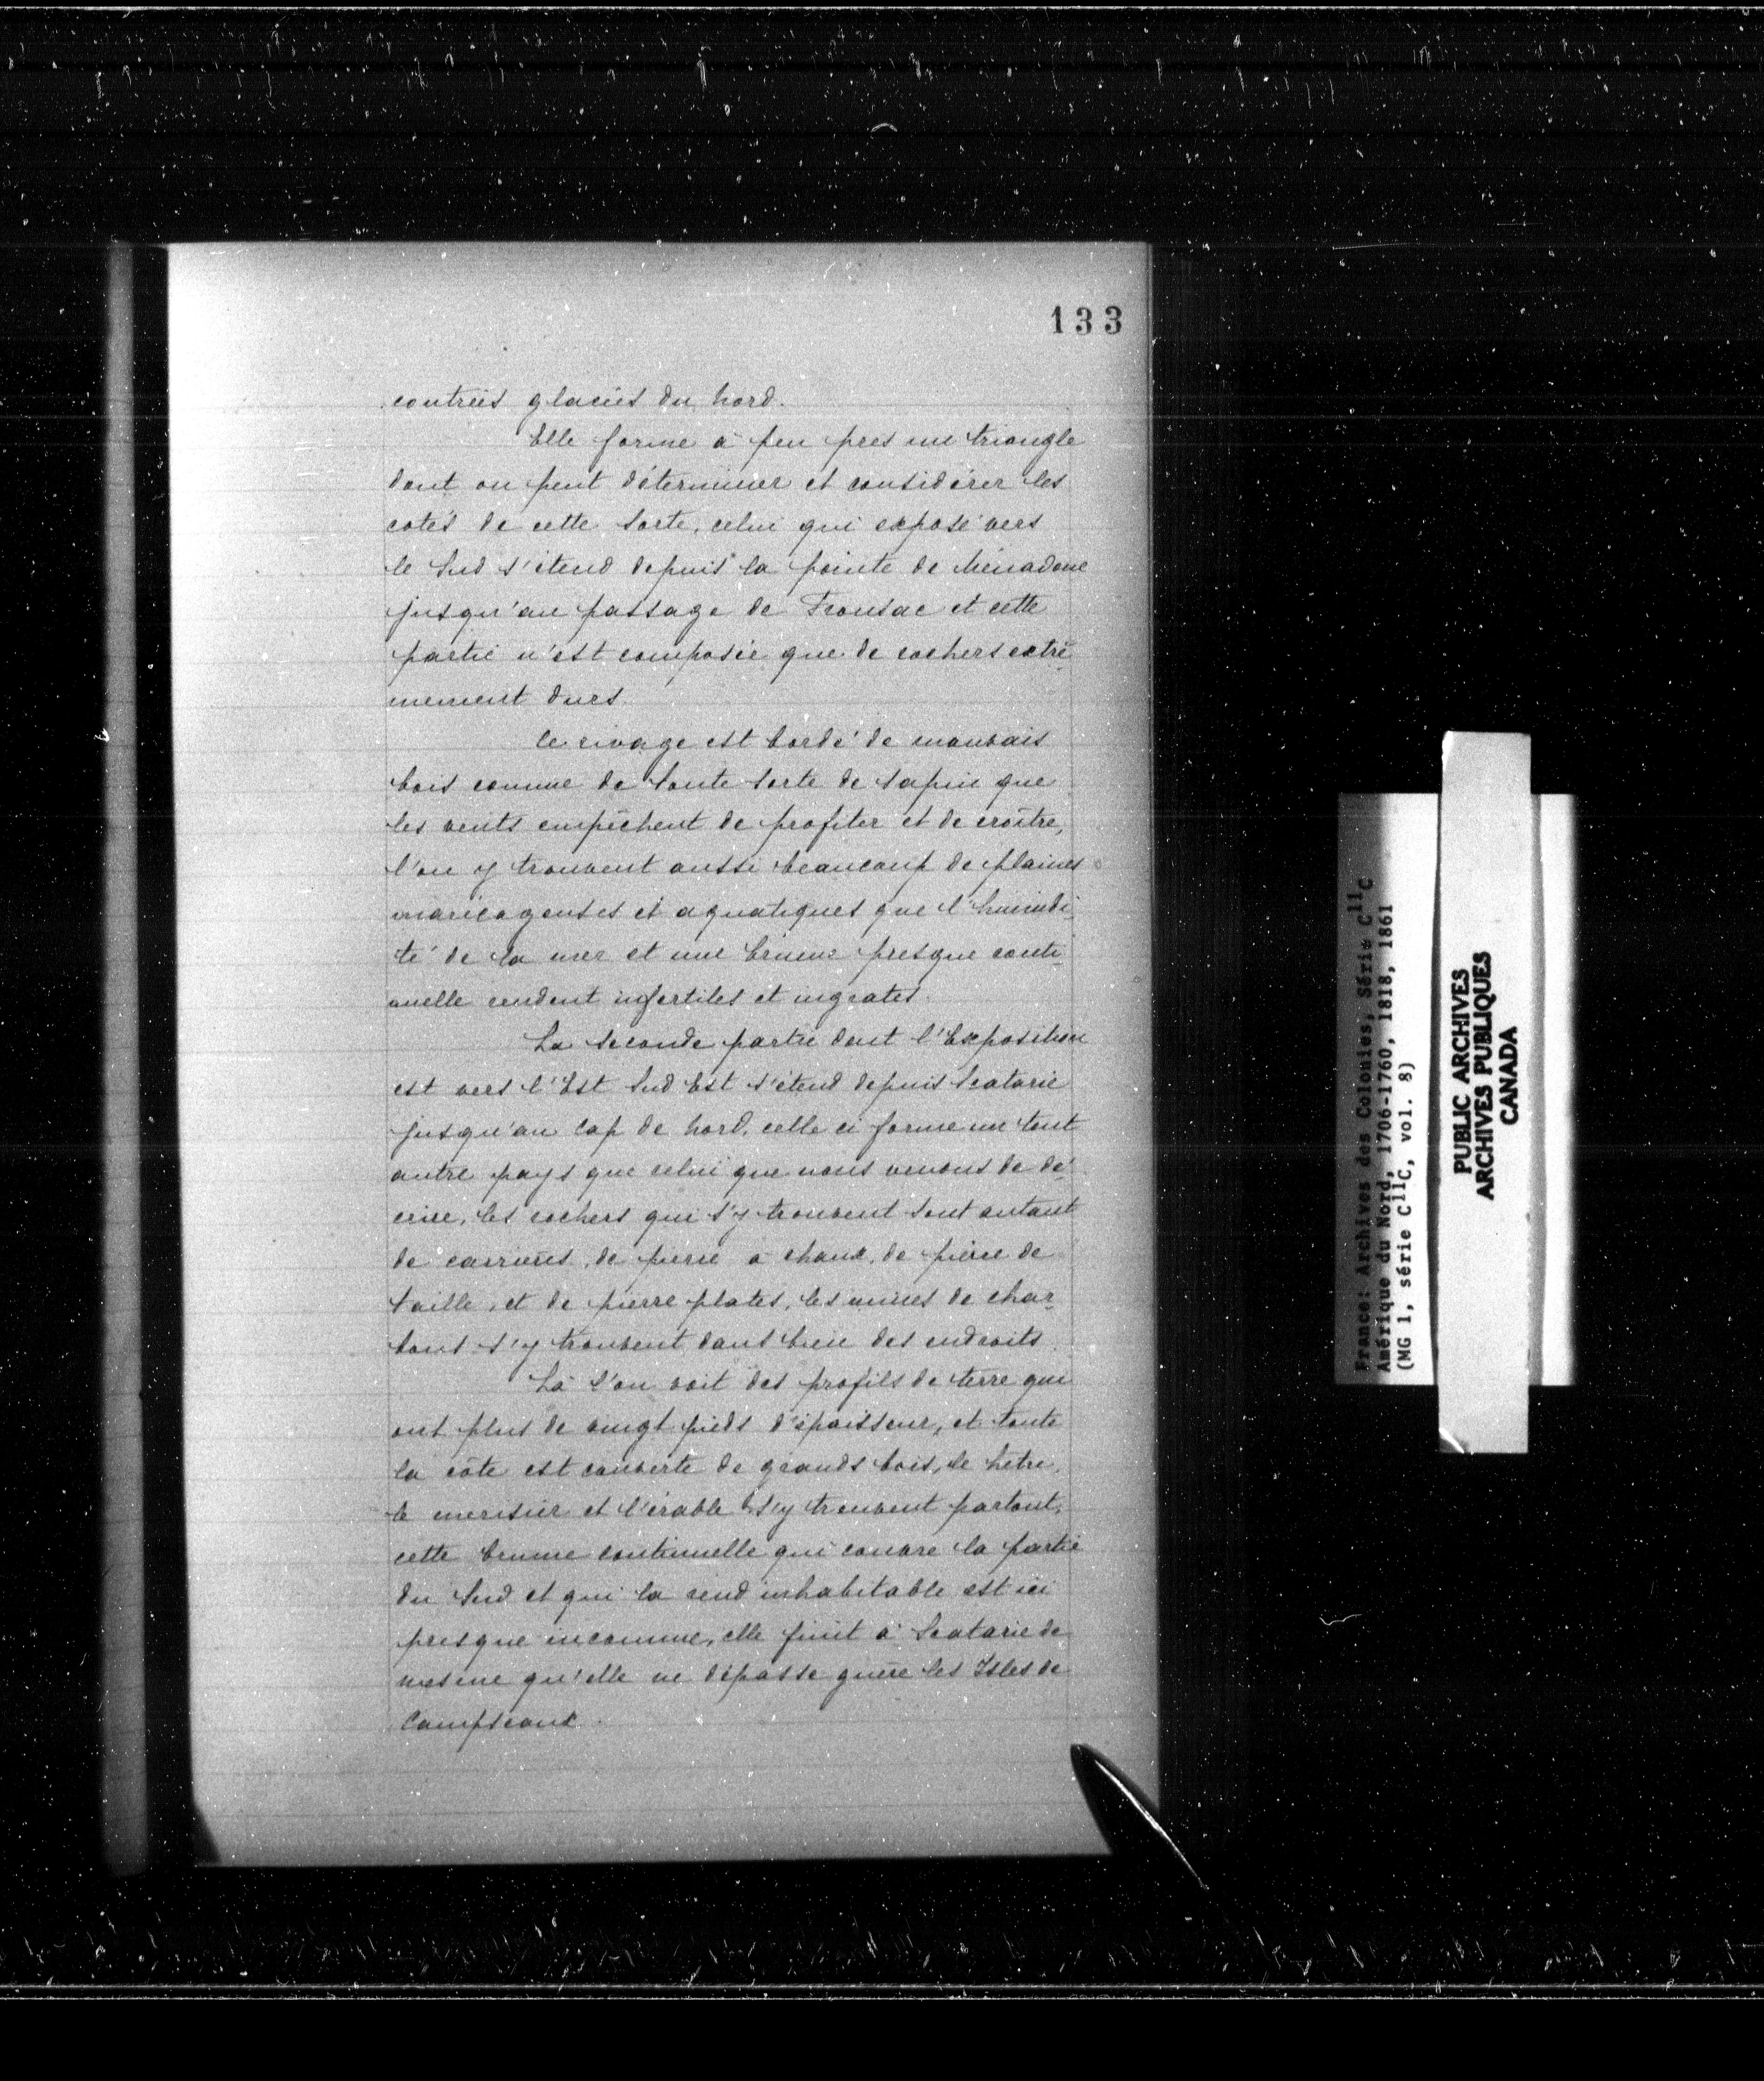 133
contrées glacées du Nord.
Elle forme à peu près un triangle
dont on peut déterminer et considérer les
cotés de cette sorte, celui qui exposé vers
le Sud s'étend depuis la pointe de Ménadoue
jusqu'au passage de Fronsac et cette
partie n'est composée que de rochers extrê-
mement durs.
Le rivage est bordé de mauvais
bois comme de toute sorte de sapin que
les vents empêchent de profiter et de croître,
l'on y trouvent aussi beaucoup de plaines
marécageuses et aquatiques que l'humidi-
té de la mer et une brume presque conti-
nuelle rendent infertiles et ingrates.
La seconde partie dont l'Exposition
est vers l'Est Sud Est s'étend depuis Scatarie
jusqu'au Cap de Nord, celle ci forme un tout
autre pays que celui que nous venons de dé-
crire, les rochers qui s'y trouvent sont autant
de carrières, de pierre à chaux, de pierre de
taille, et de pierre plates, les mines de char-
bons s'y trouvent dans bien des endroits.
Là l'on voit des profils de terre qui
ont plus de vingt pieds d'épaisseur, et toute
la côte est couverte de grands bois, le hêtre,
le merisier et l'érable s'y trouvent partout,
cette brume continuelle qui couvre la partie
du Sud et qui la rend inhabitable est ici
presque inconnue, elle finit à Scatarie de
mesme qu'elle ne dépasse guère les Isles de
Campseaux.
France: Archives des Colonies, Série C11C
Amérique du Nord, 1706-1760, 1818, 1861
(MG 1, série C11C, vol. 8)
PUBLIC ARCHIVES
ARCHIVES PUBLIQUES
CANADA